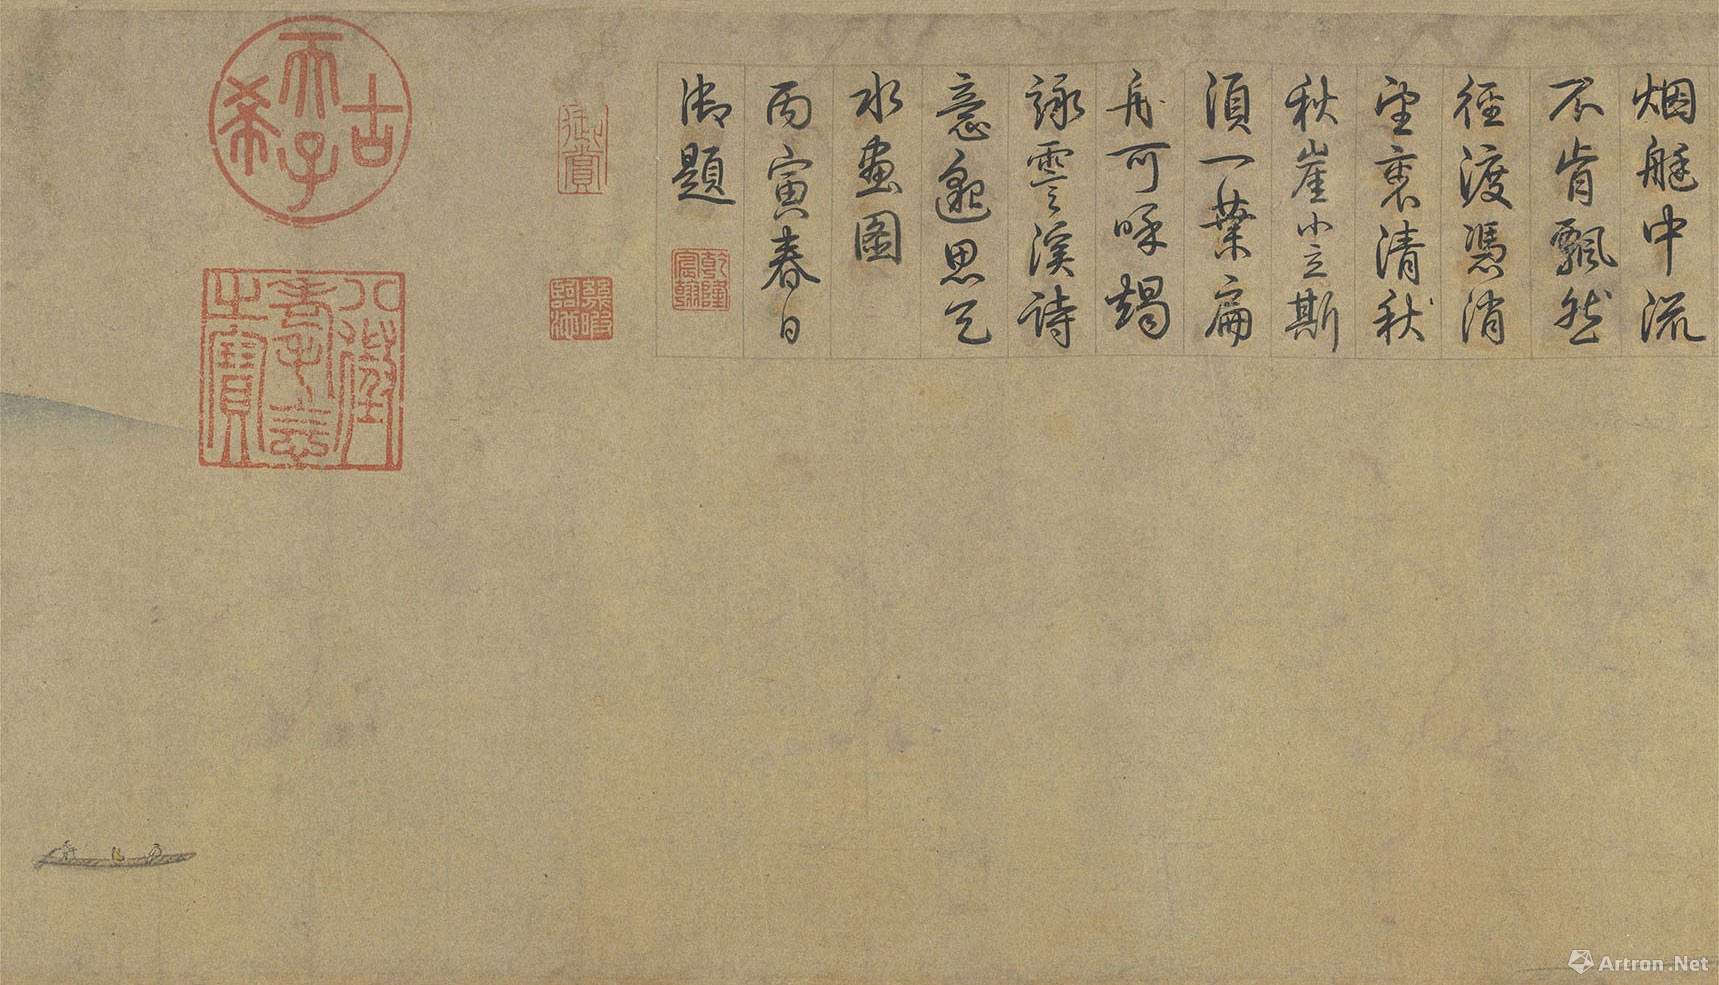 烟艇中流
不肯飄然
徑渡憑消
望裏清秋
秋崖小立斯
須一葉扁
舟可呼
詠雲溪詩
意邈思
水畫圖
丙寅春日
御題
乾隆宸翰
御賞
幾暇臨池
古希天子
八徵耄念之寶
Artron.Net